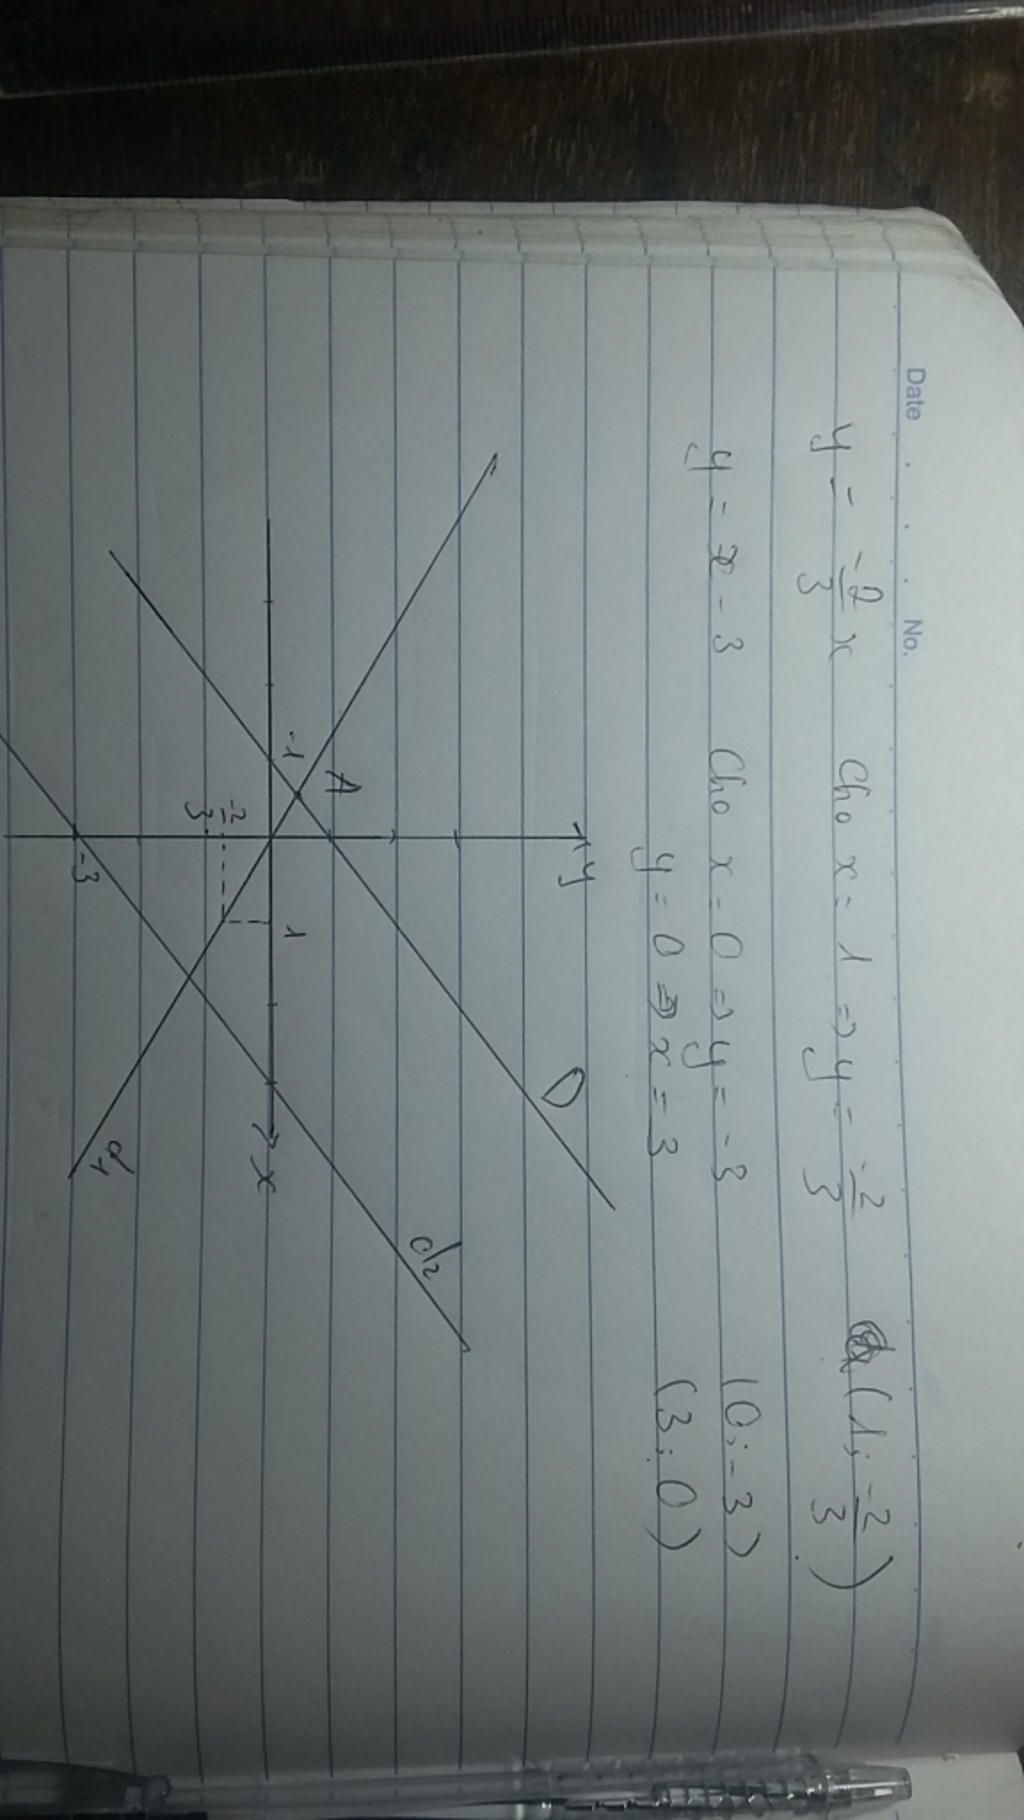 Date No.
y = -2/3 x Cho x = 1 => y = -2/3 (1; -2/3)
y = x - 3 Cho x = 0 => y = -3 (0; -3)
y = 0 => x = 3 (3; 0)
y
D
d2
A
-1
1
x
-2/3
-3
d1